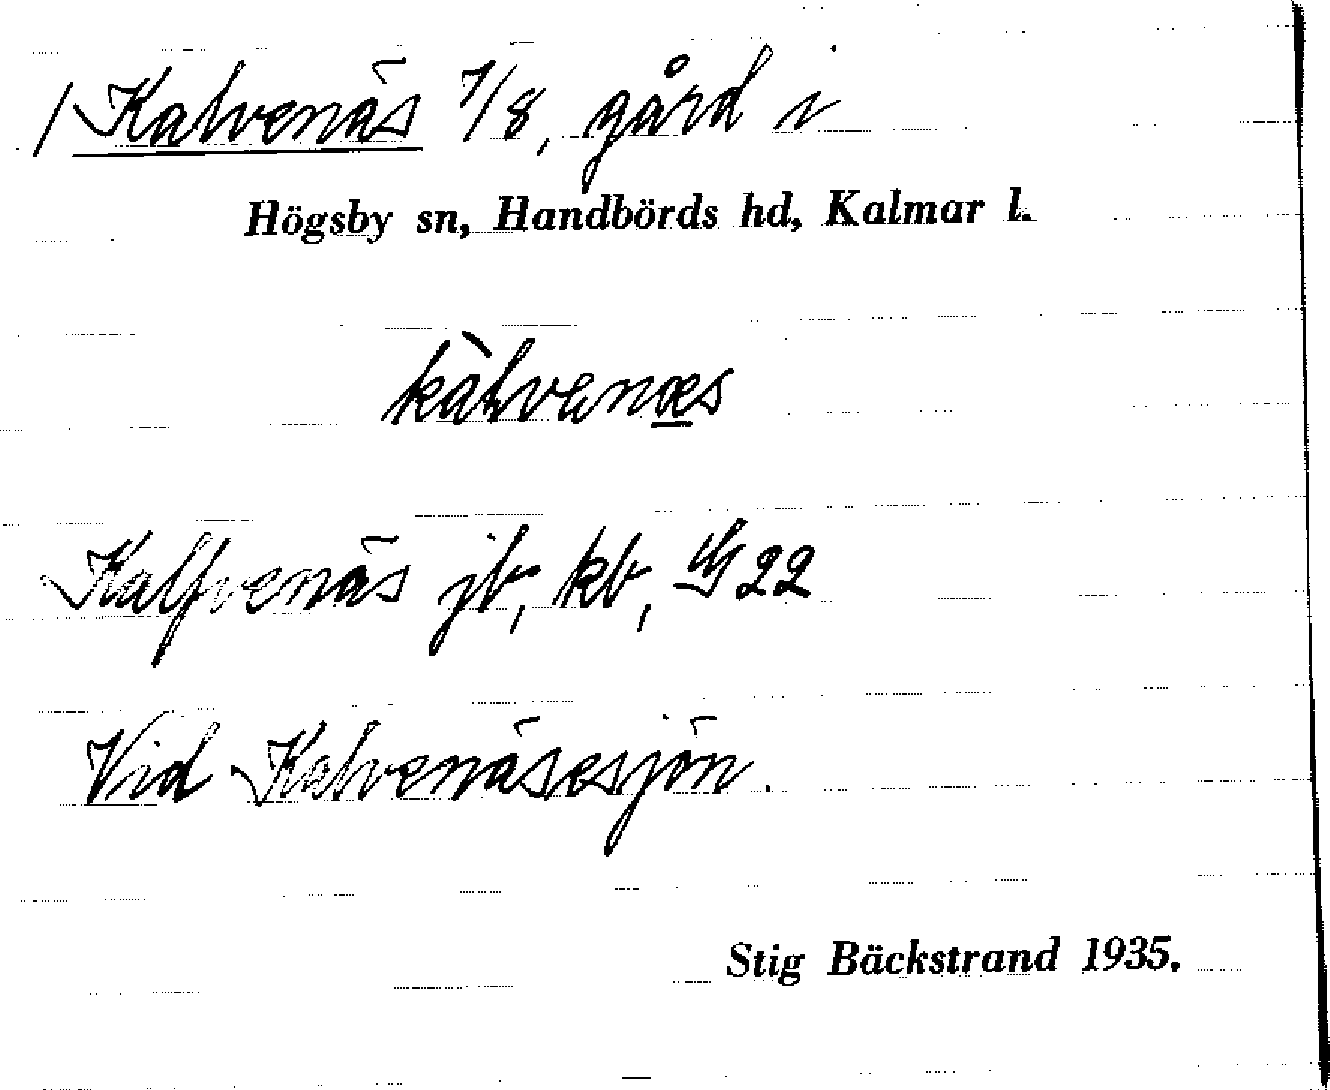 / Kalvenäs 7/8, gård i
Högsby sn, Handbörds hd, Kalmar l.
kàlvenæs
Kalfvenäs jb, kb, GS 22
Vid Kalvenäsesjön.
Stig Bäckstrand 1935.